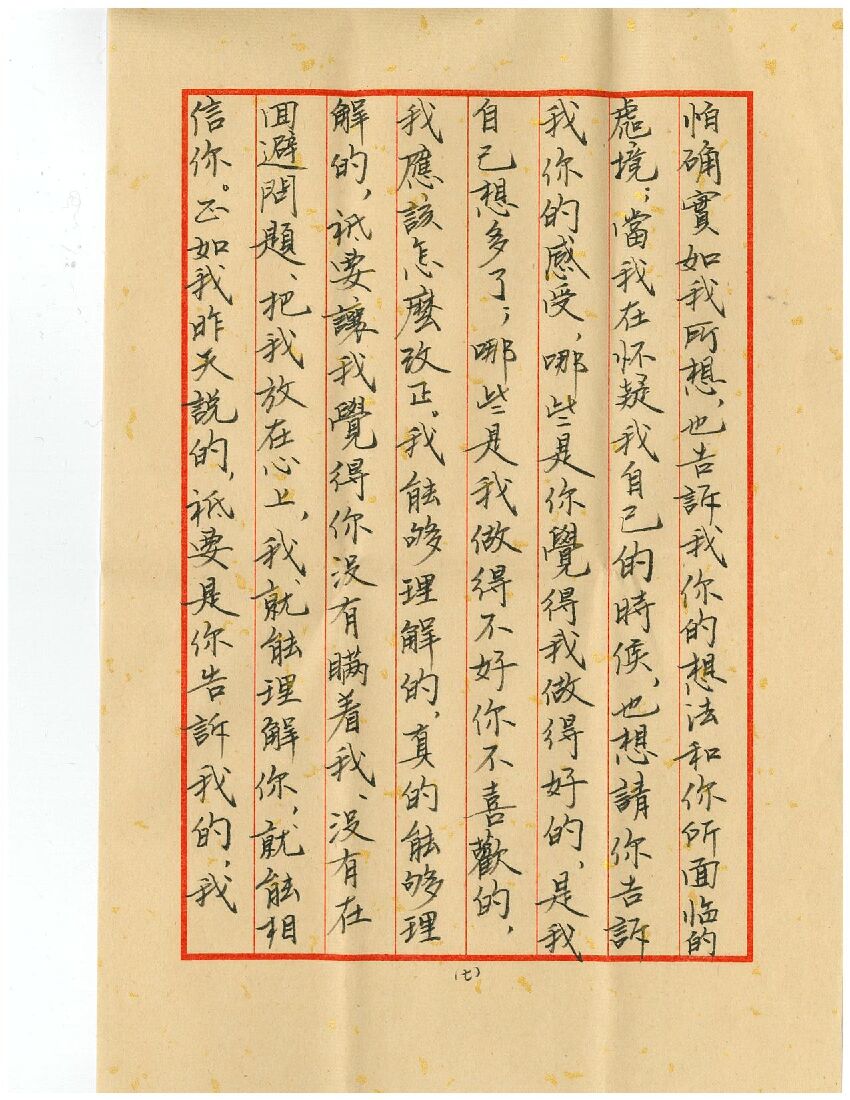 怕确實如我所想，也告訴我你的想法和你所面临的
處境；當我在怀疑我自己的時候，也想請你告訴
我你的感受，哪些是你覺得我做得好的，是我
自己想多了；哪些是我做得不好你不喜歡的，
我應該怎麼改正。我能够理解的，真的能够理
解的，祇要讓我覺得你没有瞞着我、没有在
回避問題、把我放在心上，我就能理解你，就能相
信你。正如我昨天説的，祇要是你告訴我的，我
（七）